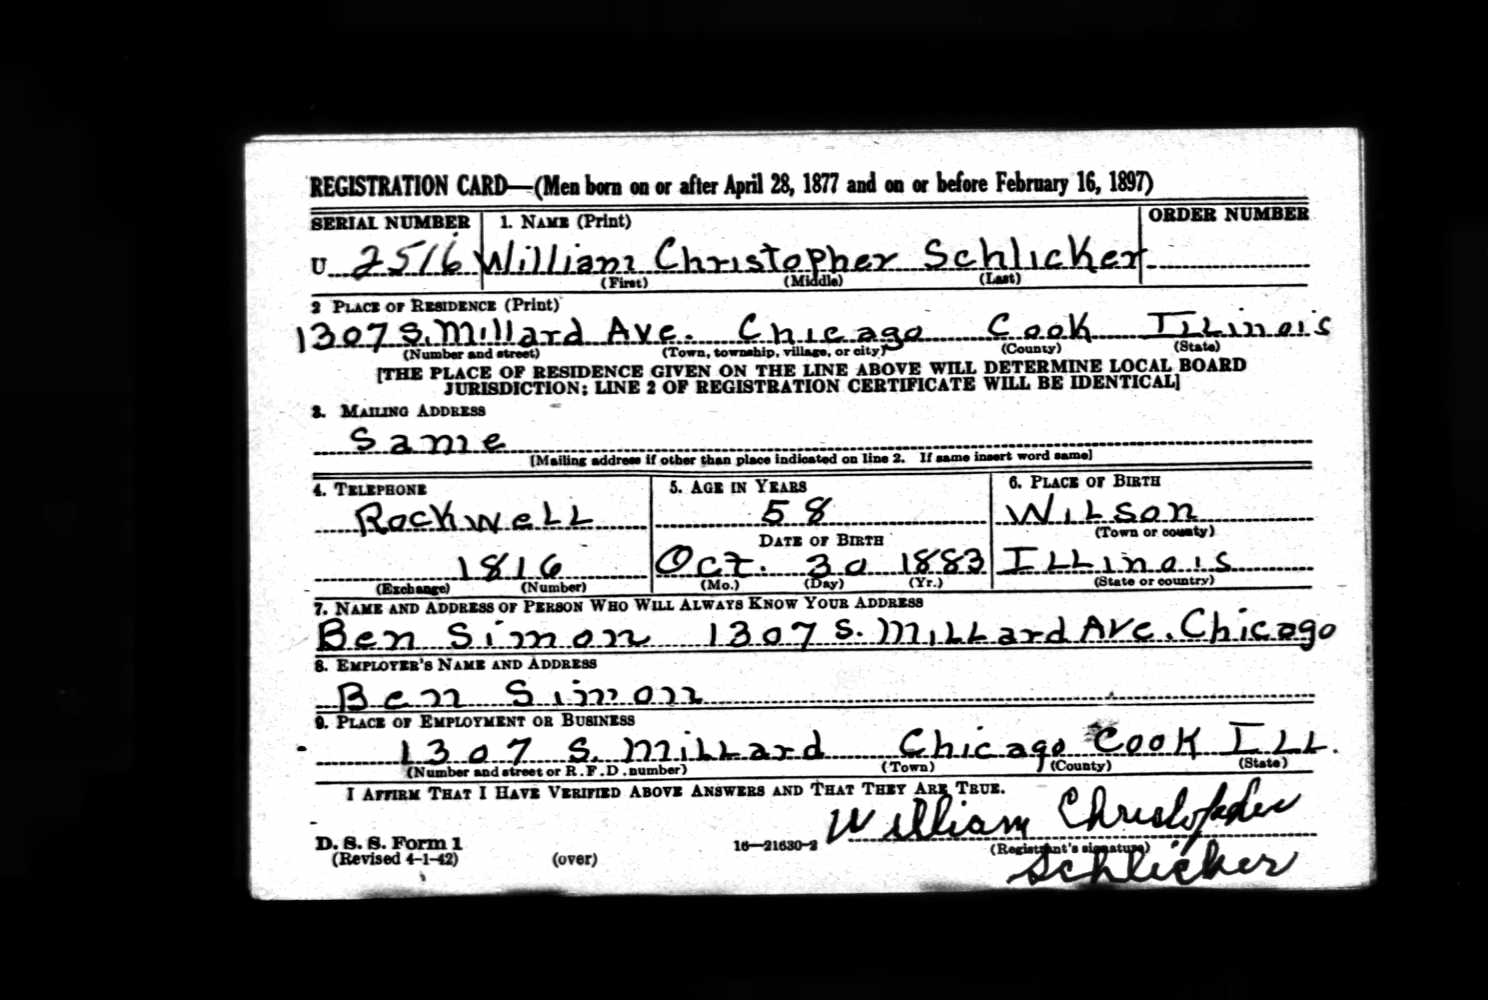 REGISTRATION CARD—(Men born on or after April 28, 1877 and on or before February 16, 1897)
SERIAL NUMBER 1. NAME (Print) ORDER NUMBER
U 2516 William Christopher Schlicker
(First) (Middle) (Last)
2 PLACE OF RESIDENCE (Print)
1307 S. Millard Ave. Chicago Cook Illinois
(Number and street) (Town, township, village, or city) (County) (State)
[THE PLACE OF RESIDENCE GIVEN ON THE LINE ABOVE WILL DETERMINE LOCAL BOARD
JURISDICTION; LINE 2 OF REGISTRATION CERTIFICATE WILL BE IDENTICAL]
3. MAILING ADDRESS
Same
[Mailing address if other than place indicated on line 2. If same insert word same]
4. TELEPHONE 5. AGE IN YEARS 6. PLACE OF BIRTH
Rockwell 58 Wilson
DATE OF BIRTH (Town or county)
1816 Oct. 30 1883 Illinois
(Exchange) (Number) (Mo.) (Day) (Yr.) (State or country)
7. NAME AND ADDRESS OF PERSON WHO WILL ALWAYS KNOW YOUR ADDRESS
Ben Simon 1307 S. Millard Ave. Chicago
8. EMPLOYER'S NAME AND ADDRESS
Ben Simon
9. PLACE OF EMPLOYMENT OR BUSINESS
1307 S. Millard Chicago Cook Ill.
(Number and street or R.F.D. number) (Town) (County) (State)
I AFFIRM THAT I HAVE VERIFIED ABOVE ANSWERS AND THAT THEY ARE TRUE.
William Christopher
D. S. S. Form 1 16—21630-2 (Registrant's signature)
(Revised 4-1-42) (over) Schlicker